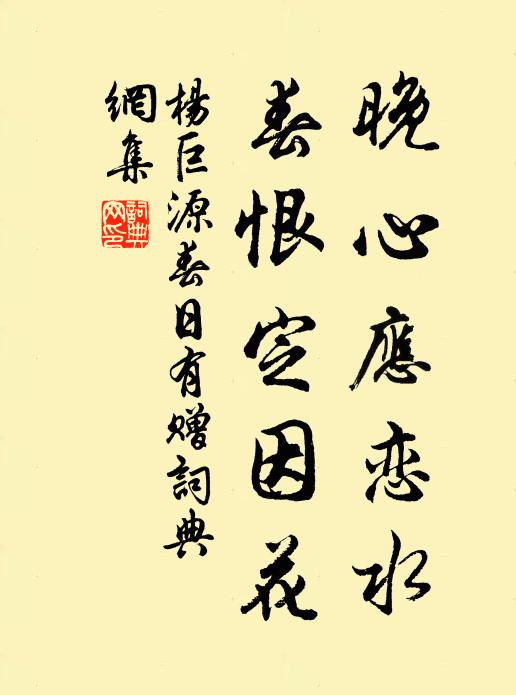 晚心應恋水
春恨定因花
楊巨源春日有赠詞典
網集
詞典網印